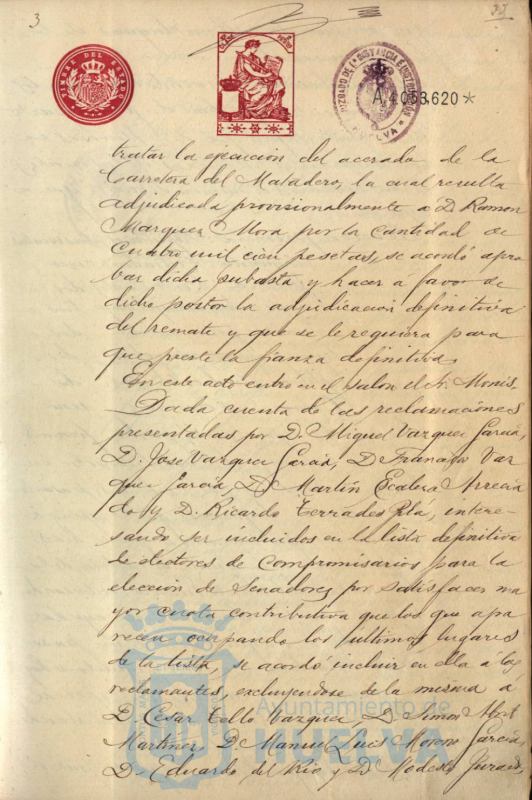 3
TIMBRE DEL ESTADO
JUZGADO DE 1ª INSTANCIA E INSTRUCCION
HUELVA
A.4.053.620*
tratar la ejecucion del acerado de la
Carretera del Matadero, la cual resulta
adjudicada provisionalmente á D. Ramon
Marquez Mora por la cantidad de
cuatro mil cien pesetas, se acordó apro
bar dicha subasta y hacer á favor de
dicho postor la adjudicacion definitiva
del remate y que se le requiera para
que preste la fianza definitiva.
En este acto entró en el salon el Sr. Monis.
Dada cuenta de las reclamaciones
presentadas por D. Miguel Vazquez Garcia,
D. Jose Vazquez Garcia, D. Francisco Vaz
quez Garcia, D. Martín Escalera Arrecia
do y D. Ricardo Terrades Pla, intere-
sando ser incluidos en la lista definitiva
de electores de Compromisarios para la
elección de Senadores por satisfacer ma
yor cuota contributiva que los que apa
recen ocupando los ultimos lugares
de la lista, se acordó incluir en ella á los
reclamantes, excluyendose de la misma á
D. Cesar Tello Vazquez, D. Simon
Martinez, D. Manuel Moreno Garcia,
D. Eduardo del Rio y D. Modesto
Ayuntamiento de
HUELVA